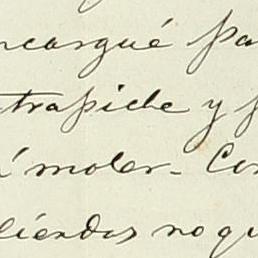 ncargué pa
trapiche y p
í moler. Con
liendas no qu